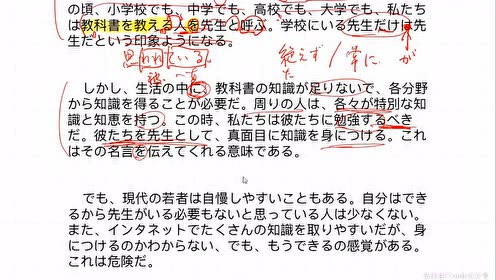 の頃、小学校でも、中学でも、高校でも、大学でも、私たち
は教科書を教える人を先生と呼ぶ。学校にいる先生だけは先
生だという印象ようになる。
思われている
絶えず/常に が
しかし、生活の中に、教科書の知識が足りないで、各分野
から知識を得ることが必要だ。周りの人は、各々が特別な知
識と知恵を持つ。この時、私たちは彼たちに勉強するべき
だ。彼たちを先生として、真面目に知識を身につける。これ
はその名言を伝えてくれる意味である。
でも、現代の若者は自慢しやすいこともある。自分はでき
るから先生がいる必要もないと思っている人は少なくない。
また、インタネットでたくさんの知識を取りやすいだが、身
につけるのかわからない、でも、もうできるの感覚がある。
これは危険だ。